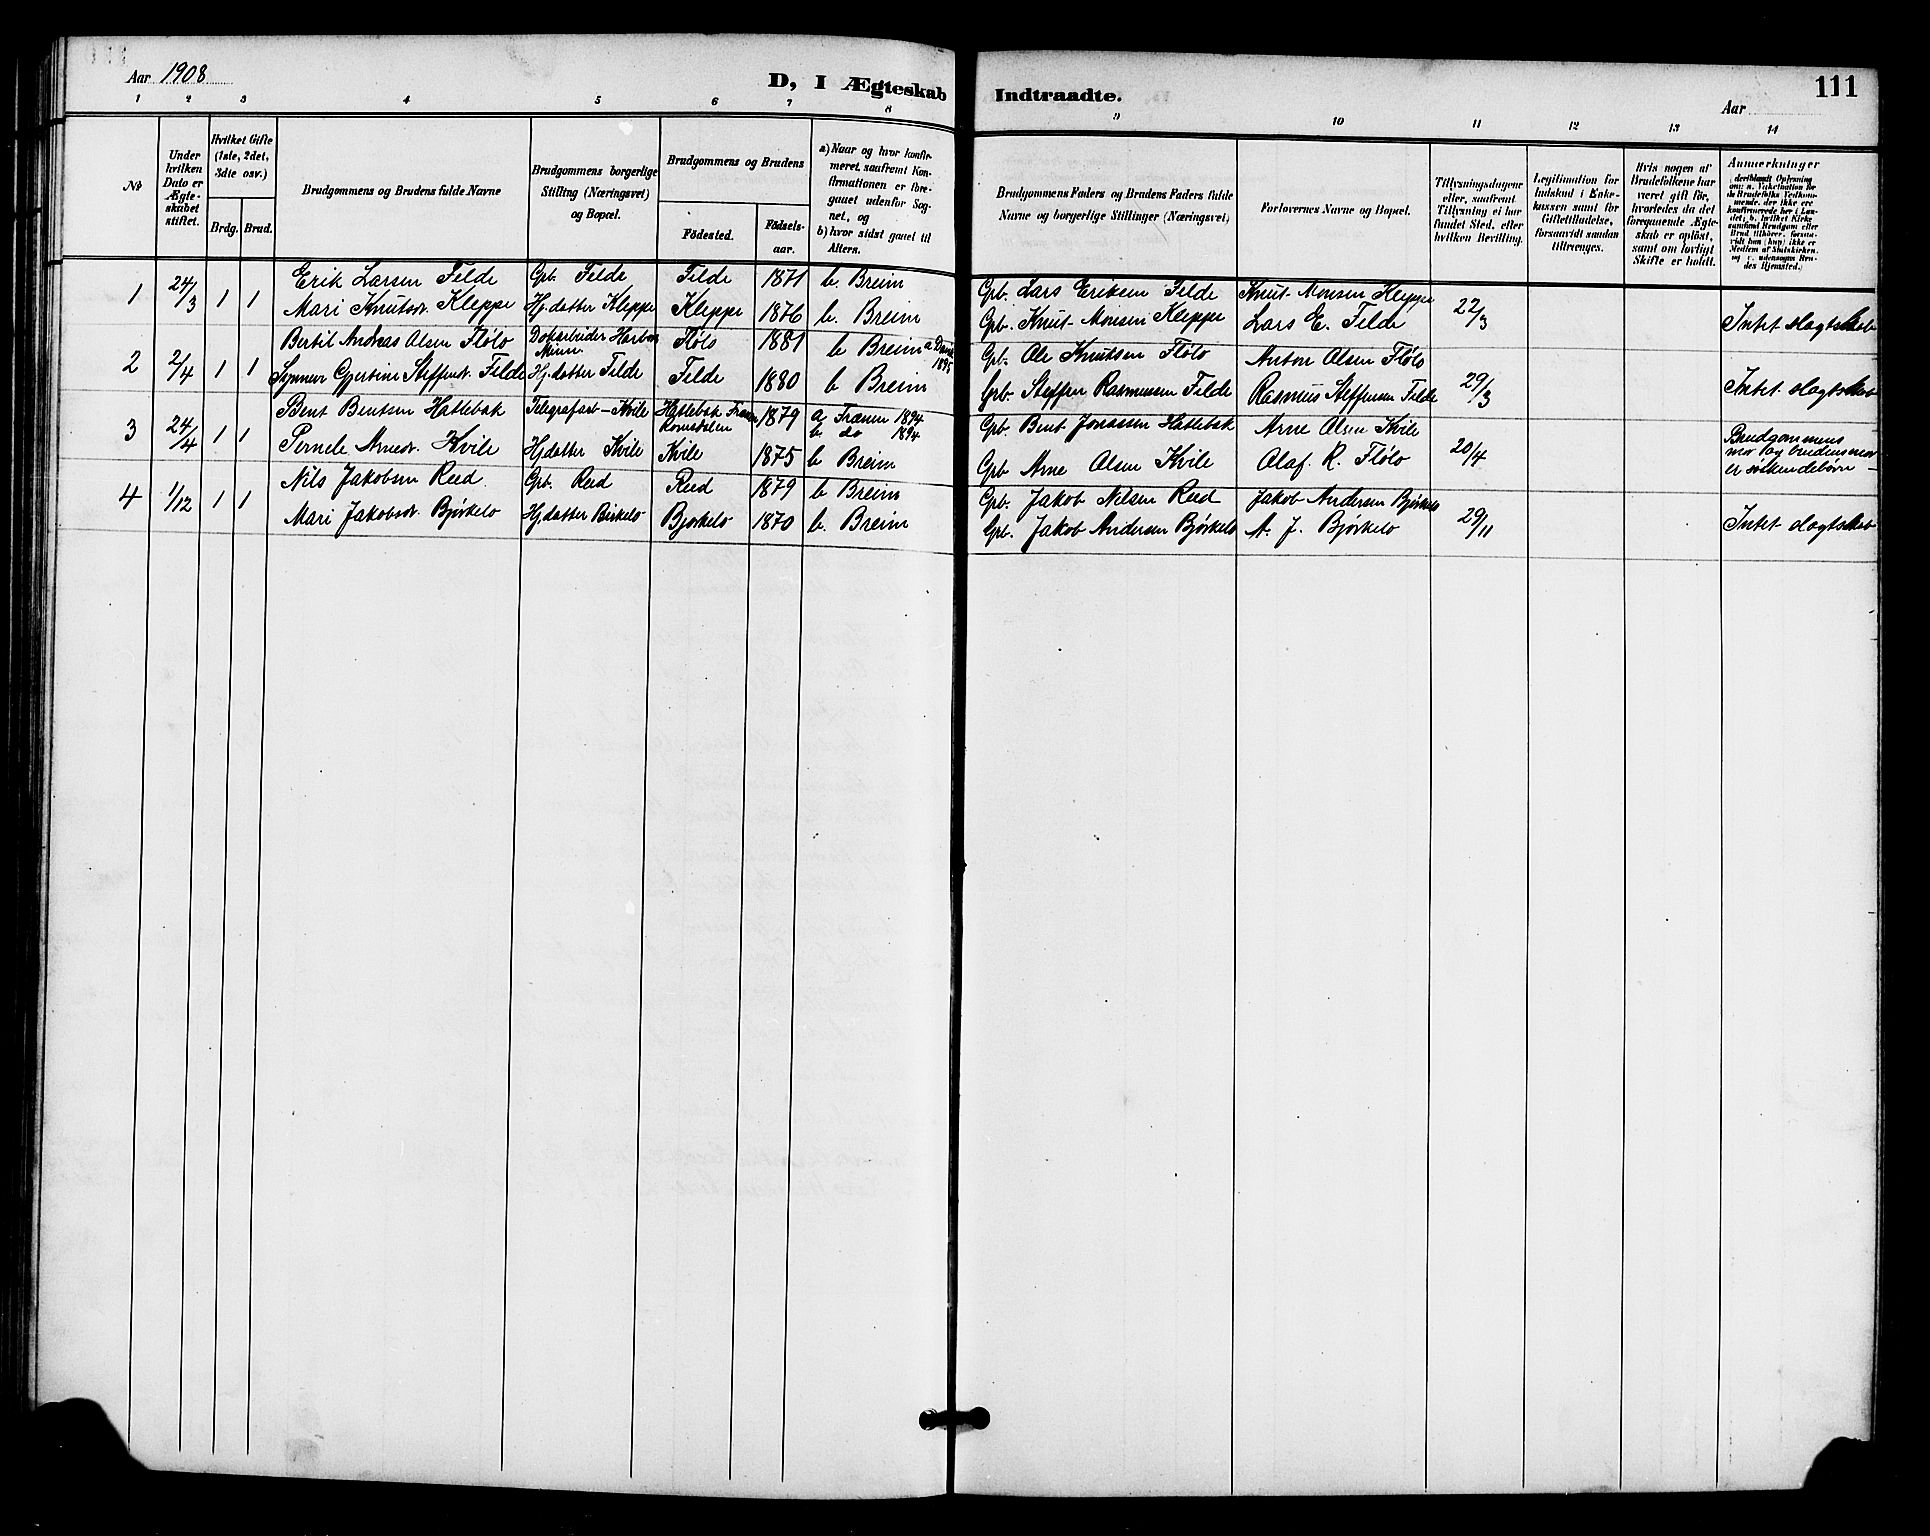 Aar 1908
D, I Ægteskab Indtraadte.
111
Aar
1 2 3 4 5 6 7 8 9 10 11 12 13 14
No
Under hvilken Dato er Ægteskabet stiftet.
Hvilket Gifte (1ste, 2det, 3die osv.)
Brdg. Brud.
Brudgommens og Brudens fulde Navne
Brudgommens borgerlige Stilling (Næringsvei) og Bopæl.
Brudgommens og Brudens
Födested. Födsels-aar.
a) Naar og hvor konfirmeret, saafremt Konfirmationen er foregaaet udenfor Sognet, og
b) hvor sidst gaaet til Alters.
Brudgommens Faders og Brudens Faders fulde Navne og borgerlige Stillinger (Næringsvei)
Forlovernes Navne og Bopæl.
Tillysningsdagene eller, saafremt Tillysning ei har fundet Sted, efter hvilken Bevilling.
Legitimation for Indskud i Enkekassen samt for Giftetilladelse, forsaavidt saadan tiltrænges.
Hvis nogen af Brudefolkene har været gift før, hvorledes da det foregaaende Ægteskab er opløst, samt om lovligt Skifte er holdt.
Anmærkninger
(deriblandt Oplysning om: a. Vakcination for de Brudefolks Vedkommende, der ikke ere konfirmerede her i Landet; b. hvilket Kirkesamfund Brudgom eller Brud tilhører, forsaavidt han (hun) ikke er Medlem af Statskirken, og c. udensogns Brudes Hjemsted.)
1 24/3 1 1 Erik Larsen Felde Gb. Felde Felde 1871 b. Breim Gb. Lars Eriksen Felde Knut Monsen Kleppe 22/3
Mari Knutsdr. Kleppe Hj.datter Kleppe Kleppe 1876 b. Breim Gb. Knut Monsen Kleppe Lars E. Felde Intet slagtskab
2 2/4 1 1 Bertil Andreas Olsen Flölo Dokarbeider Flölo 1881 b Breim a 1895 Gb. Ole Knutsen Flölo Anton Olsen Flölo 29/3
Gjertine Steffensdr. Felde Hj.datter Felde Felde 1880 b Breim Gb. Steffen Rasmussen Felde Rasmus Steffensen Felde Intet slagtskab
3 24/4 1 1 Bent Bentsen Hatlebak Telegrafarb - Kvile Hatlebak Frænen Romsdalen 1879 a Frænen 1894 b do 1894 Gb. Bent Jonassen Hatlebak Arne Olsen Kvile 20/4 Brudgommens mor og brudens mor er söskendebörn
Pernele Arnesdr. Kvile Hj.datter Kvile Kvile 1875 b Breim Gb. Arne Olsen Kvile Olaf. R. Flölo
4 1/12 1 1 Nils Jakobsen Reed Gb. Reed Reed 1879 b Breim Gb. Jakob Nilsen Reed Jakob Andersen Björkelo 29/11
Mari Jakobsdr. Björkelo Hj.datter Birkelo Bjorkelo 1870 b. Breim Gb. Jakob Andersen Björkelo A. J. Björkelo Intet slagtskab